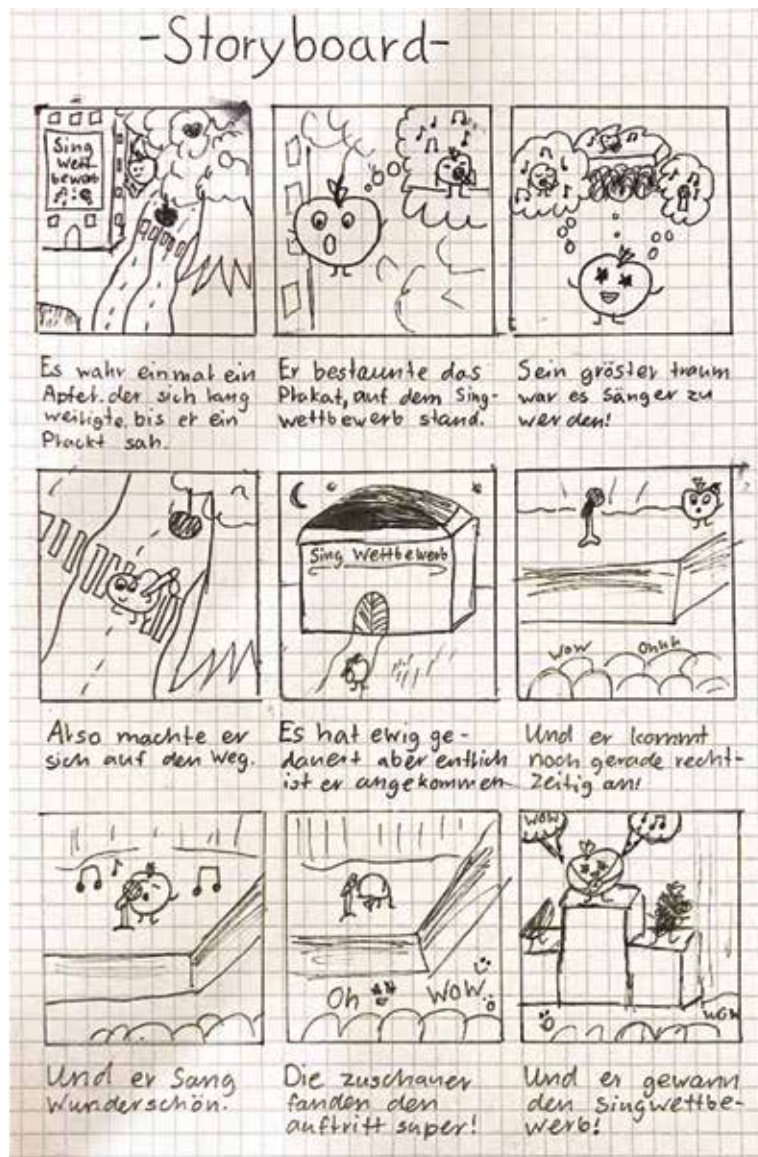 -Storyboard-
Sing
Wett
bewerb
Es wahr einmal ein
Apfel. der sich lang
weiligte, bis er ein
Plackt sah.
Er bestaunte das
Plakat, auf dem Sing-
wettbewerb stand.
Sein gröster traum
war es Sänger zu
werden!
Sing Wettbewerb
Wow
Ohhh
Also machte er
sich auf den Weg.
Es hat ewig ge-
dauert aber entlich
ist er angekommen
Und er kommt
noch gerade recht-
zeitig an!
Oh
WOW
WOW
WOW
Und er Sang
Wunderschön.
Die zuschauer
fanden den
auftritt super!
Und er gewann
den Singwettbe-
werb!